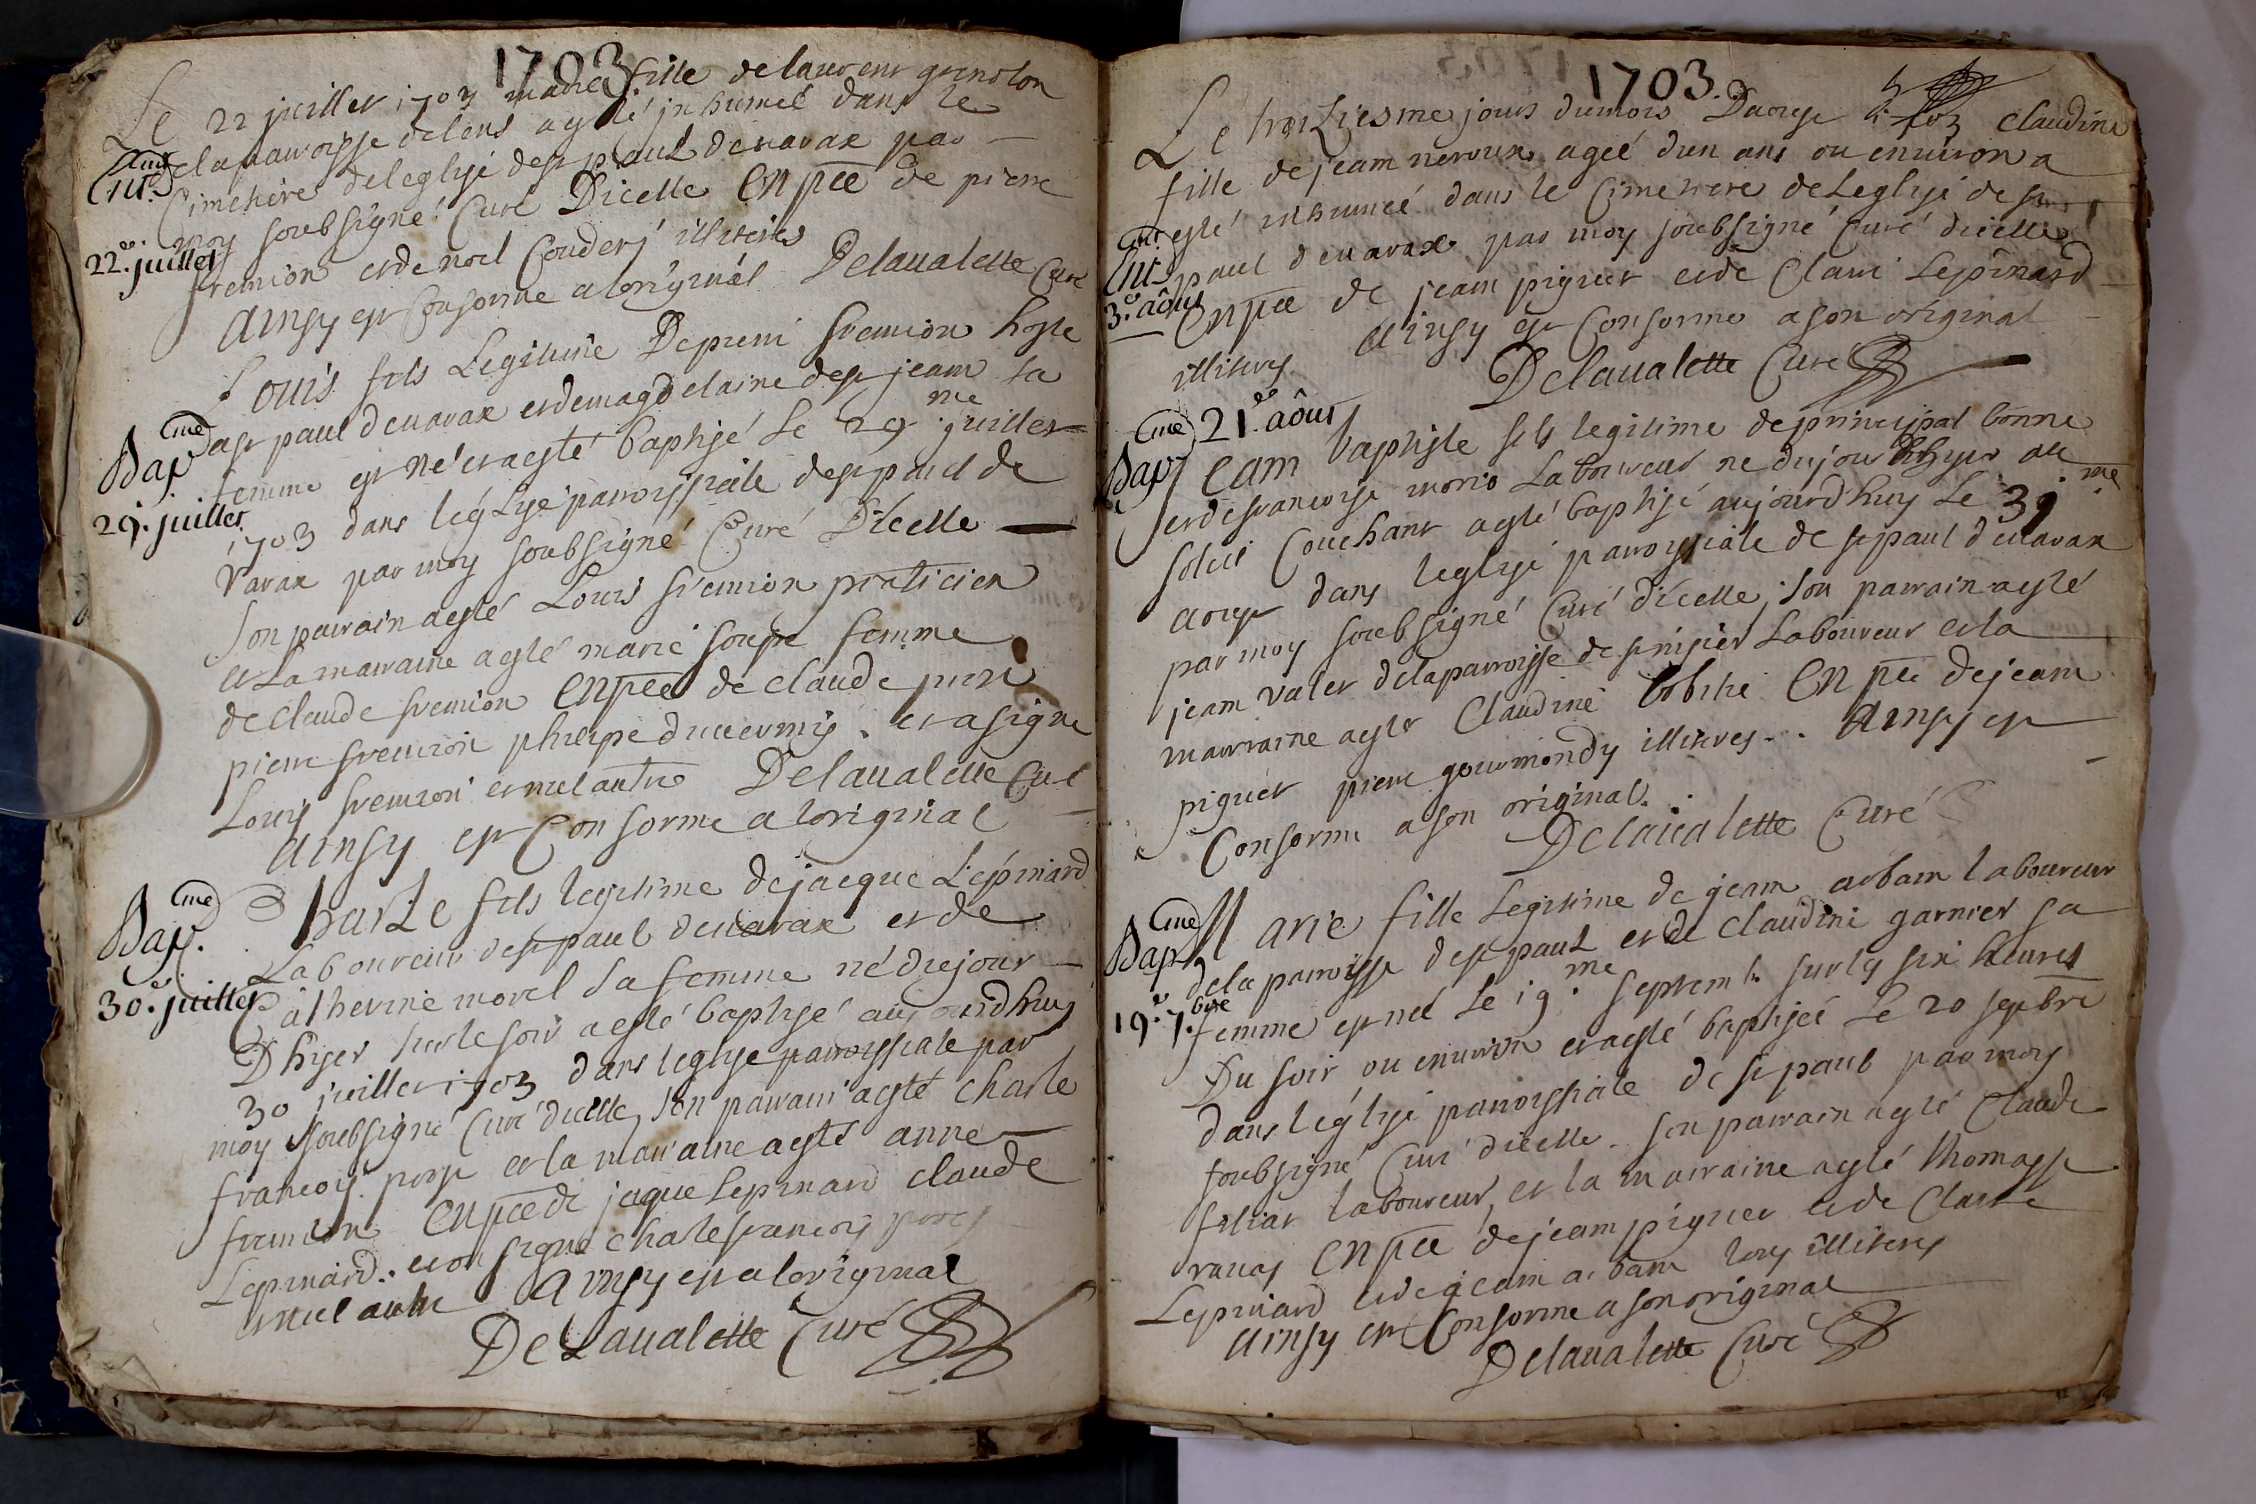 1703
Le 22 juillet 1703 marie fille de laurent
de la parroisse de lent a esté inhumeé dans le
Cimetiere de leglise de st paul de varax par
moy soubsigné Curé Dicelle En pce de pierre
fremion et de noel Couderj illiteres
Ainsy est Conforme a loriginal Delaualette Curé
22.e juillet
Louis fils Legitime De pierre fremion hoste
a st paul de varax et de magdelaine de st jean sa
femme est né et a esté baptisé Le 29 me juillet
1703 dans léglise parroissiale de st paul de
Varax par moy soubsigné Curé Dicelle
Son parrain a esté Louis fremion praticien
et La marraine a esté marie femme
de Claude fremion En pce de Claude
pierre fremion et a signé
Louis fremion et nul autre Delaualette Curé
Ainsy est Conforme a loriginal
Bap.
29.e juillet
Charle fils legitime de jacque Lépinard
Laboureur de st paul de varax et de
Catherine morel Sa femme né du jour
Dhyer sur le soir a esté baptisé aujourdhuy
30 juillet 1703 dans leglise parroissiale par
moy soubsigné Curé dicelle, son parrain a esté Charle
francois et la marraine a esté anne
fremion En pce de jaque Lepinard Claude
Lepinard et on signé Charle francois
et nul autre Ainsy est a loriginal
DeLaualette Curé
Bap.
30.e juillet
1703.
Le troiziesme jour du mois Daoust 1703 Claudine
fille de jean neroux ageé dun ans ou environ a
esté inhumeé dans le Cimetiere de Leglise de st
paul de varax par moy soubsigné Curé dicelle
En pce de jean piguet et de Claire Lepinard
illiteres. Ainsy est Conforme a son original
Delaualette Curé
3.e août
21.e août
Jean baptiste fils legitime de principal bonne
et de francoise morio Laboureur ne du jour dhyer au
soleil Couchant a esté baptisé aujourdhuy Le
aoust dans leglise parroissiale de st paul de varax
par moy soubsigné Curé dicelle, son parrain a esté
jean valet de la parroisse de st nisier Laboureur et la
marraine a este Claudine En pce de jean
piguet pierre gourmondy illiteres. Ainsy est
Conforme a son original.
Delaualette Curé
Bap
Marie fille Legitime de jean arbam laboureur
de la parroisse de st paul et de Claudine garnier sa
femme est neé le 19 me septemb. sur les six heures
Du soir ou environ et a esté baptiseé Le 20 septbre
dans léglise parroissiale de st paul par moy
soubsigné Curé dicelle. son parrain a esté Claude
laboureur, et la marraine a esté thomasse
En pce de jean piguet et de Claire
Lepinard et de jean arbam tous illiteres
Ainsy est Conforme a son original
Delaualette Curé
Bap
19.e 7.bre